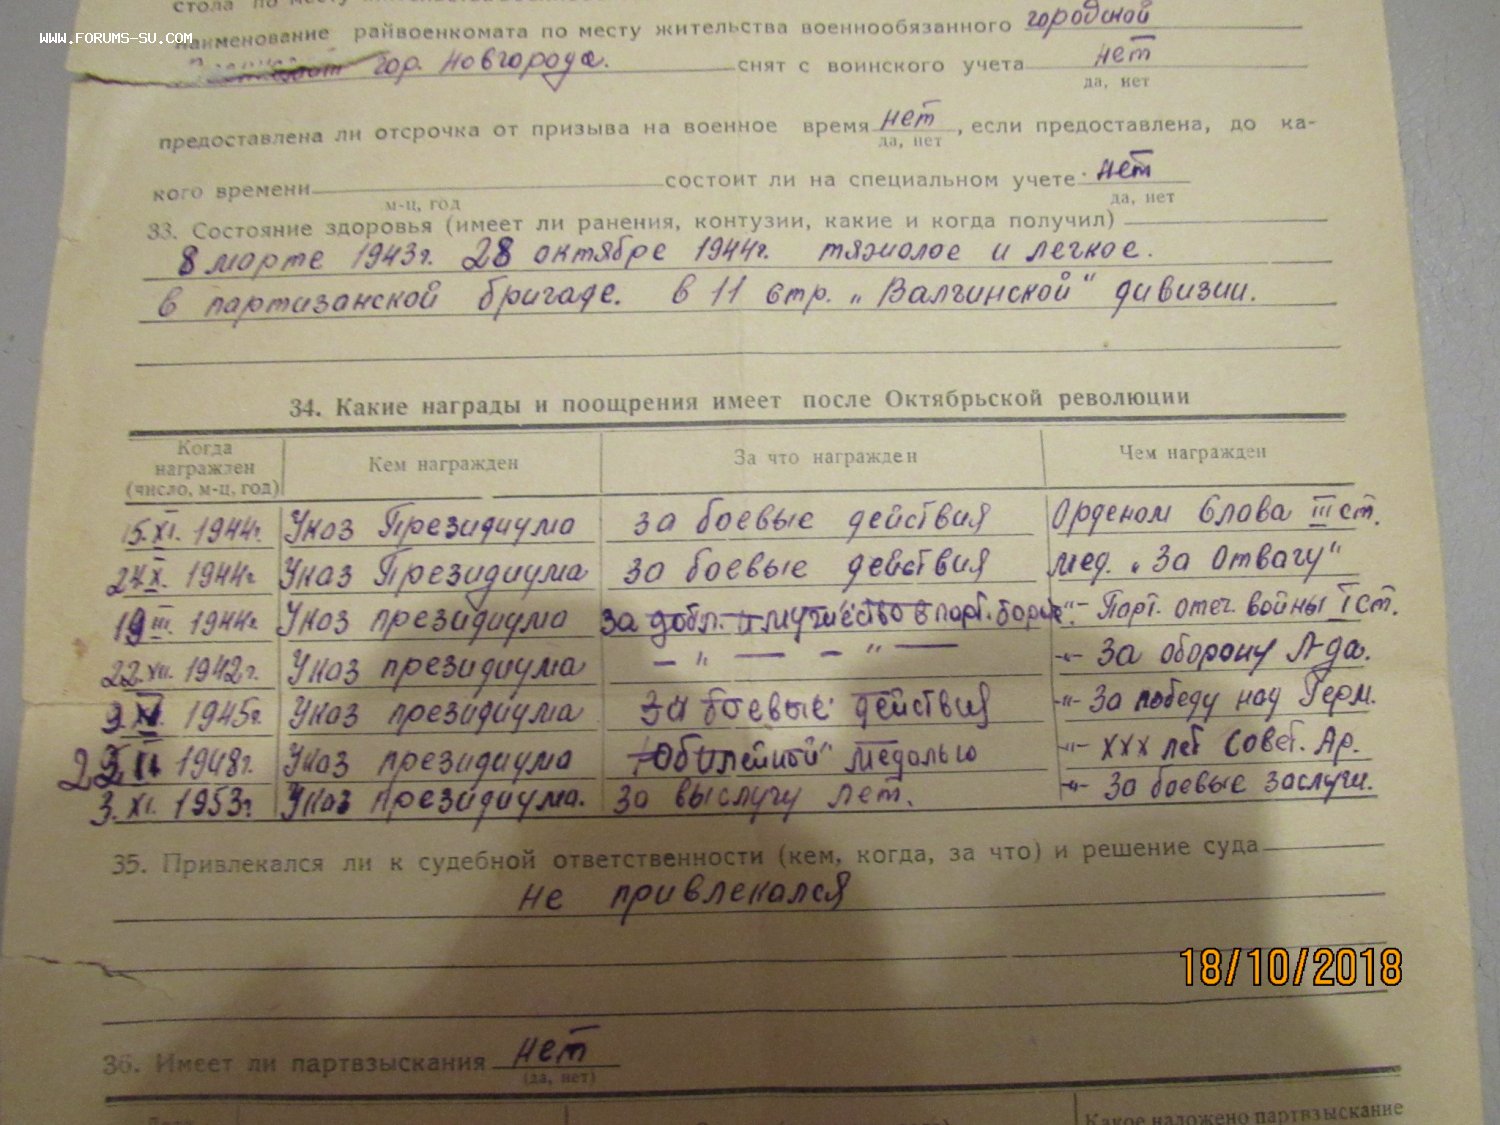 WWW.FORUMS-SU.COM
стола по месту
наименование райвоенкомата по месту жительства военнообязанного городской
гор. Новгорода. снят с воинского учета нет
да, нет
предоставлена ли отсрочка от призыва на военное время нет, если предоставлена, до ка-
да, нет
кого времени состоит ли на специальном учете нет
м-ц, год да, нет
33. Состояние здоровья (имеет ли ранения, контузии, какие и когда получил)
8 марте 1943г. 28 октябре 1944г. тяжолое и легкое.
в партизанской бригаде. в 11 стр. „Валгинской" дивизии.
34. Какие награды и поощрения имеет после Октябрьской революции
Когда награжден (число, м-ц, год) Кем награжден За что награжден Чем награжден
15.XI. 1944г. Указ Президиума за боевые действия Орденом Слова III ст.
X. 1944г. Указ Президиума за боевые действия мед. „За Отвагу"
19 III. 1944г. Указ президиума за добл. и мужество в парт. борьбе. -"- Парт. отеч. войны I ст.
22. 1942г. Указ президиума — " — — " — -"- За оборону Л-да.
9. 1945г. Указ президиума За боевые действия -"- За победу над Герм.
1948г. Указ президиума „Юбилейной" медалью -"- XXX лет Совет. Ар.
3. XI. 1953г. Указ президиума. За выслугу лет. -"- За боевые заслуги.
35. Привлекался ли к судебной ответственности (кем, когда, за что) и решение суда
не привлекался
18/10/2018
36. Имеет ли партвзыскания нет
(да, нет)
Какое наложено партвзыскание